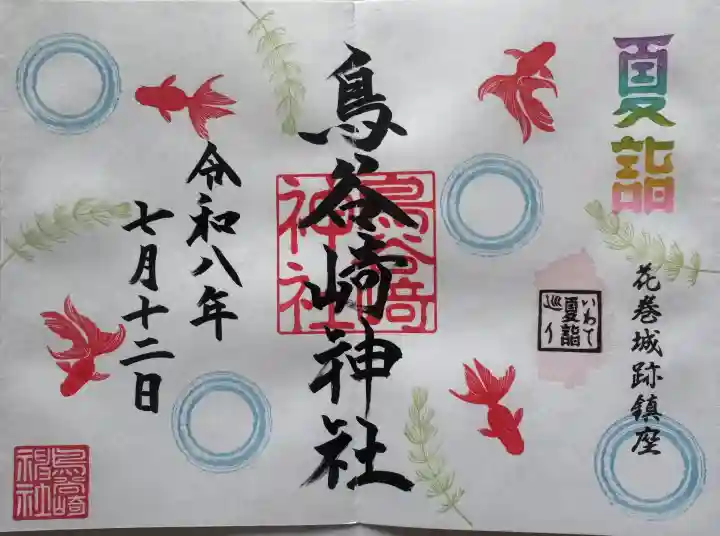 夏詣
花巻城跡鎮座
いわて
夏詣
巡り
鳥谷崎神社
鳥谷崎
神社
令和八年
七月十二日
鳥谷崎
神社